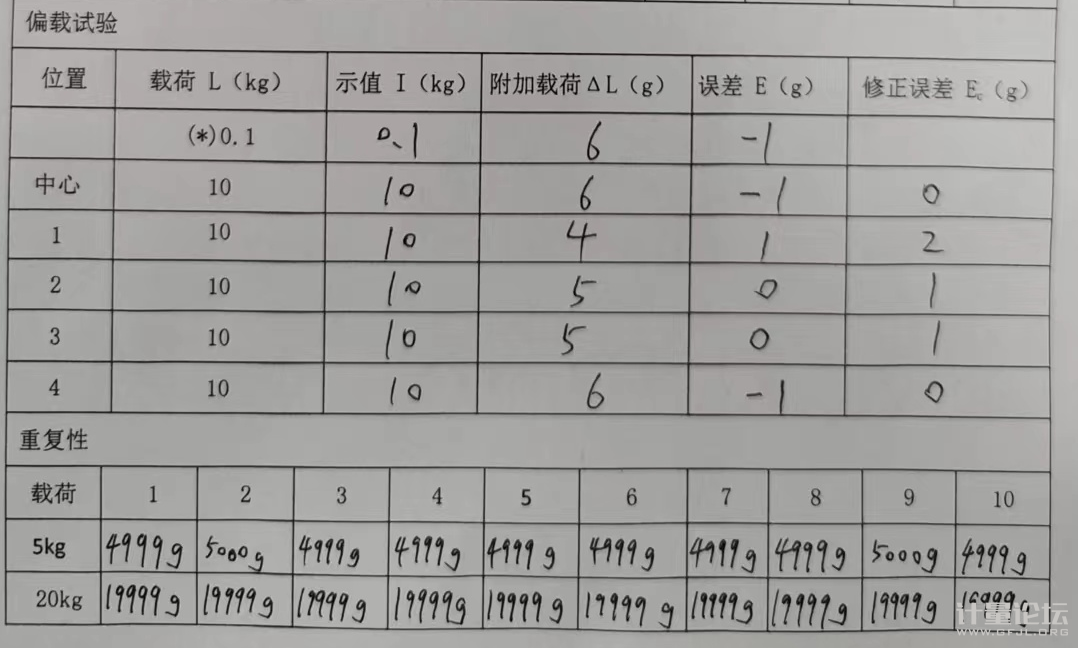 偏载试验
位置 载荷 L（kg） 示值 I（kg） 附加载荷ΔL（g） 误差 E（g） 修正误差 Ec（g）
(*)0.1 0.1 6 -1
中心 10 10 6 -1 0
1 10 10 4 1 2
2 10 10 5 0 1
3 10 10 5 0 1
4 10 10 6 -1 0
重复性
载荷 1 2 3 4 5 6 7 8 9 10
5kg 4999g 5000g 4999g 4999g 4999g 4999g 4999g 4999g 5000g 4999g
20kg 19999g 19999g 19999g 19999g 19999g 19999g 19999g 19999g 19999g
计量论坛
WWW.GFJL.ORG